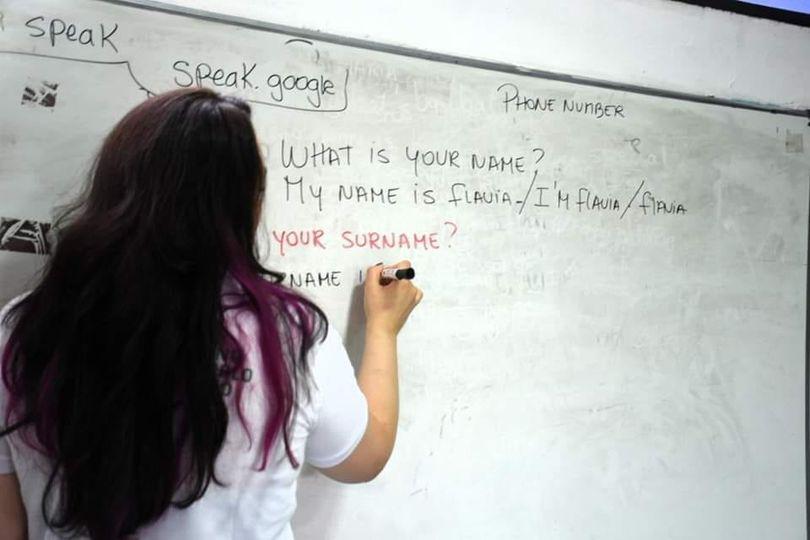 SPEAK
SPEAK. google
PHONE NUMBER
WHAT IS YOUR NAME?
MY NAME IS FLAVIA-/I'M FLAVIA/FLAVIA
YOUR SURNAME?
NAME I